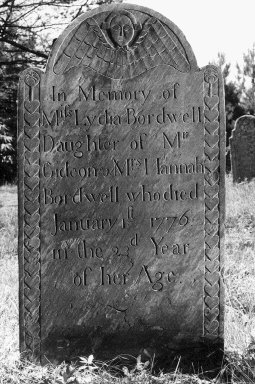 In Memory of
Miſs Lydia Bordwell
Daughter of Mr
Gideon & Mrs Hannah
Bordwell who died
January 1st 1776
in the 23d Year
of her Age.